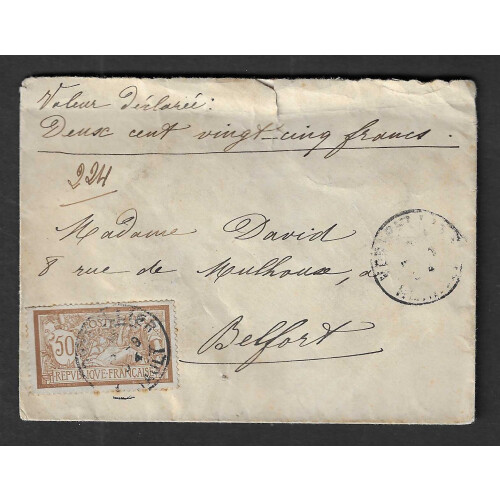 Valeur déclarée:
Deux cent vingt-cinq francs.
224
Madame David
8 rue de Mulhouse, à
Belfort
50
REPVBLIQVE·FRANÇAISE